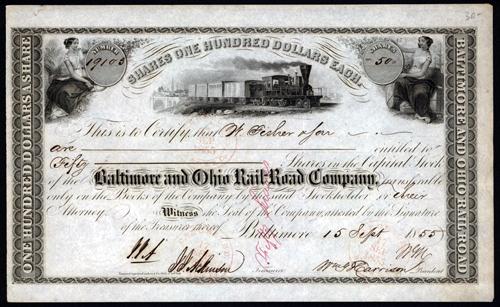 30-
NUMBER
19103
SHARES ONE HUNDRED DOLLARS EACH.
SHARES
50
ONE HUNDRED DOLLARS A SHARE
BALTIMORE AND OHIO RAIL-ROAD
This is to Certify, that W. Fisher & Son
are entitled to
Fifty Shares in the Capital Stock
of the Baltimore and Ohio Rail-Road Company, transferable
only on the Books of the Company by the said Stockholder or their
Attorney. Witness the Seal of the Company, attested by the Signature
of the Treasurer thereof. Baltimore 15 Sept 1855
Treasurer
Wm G Harrison President